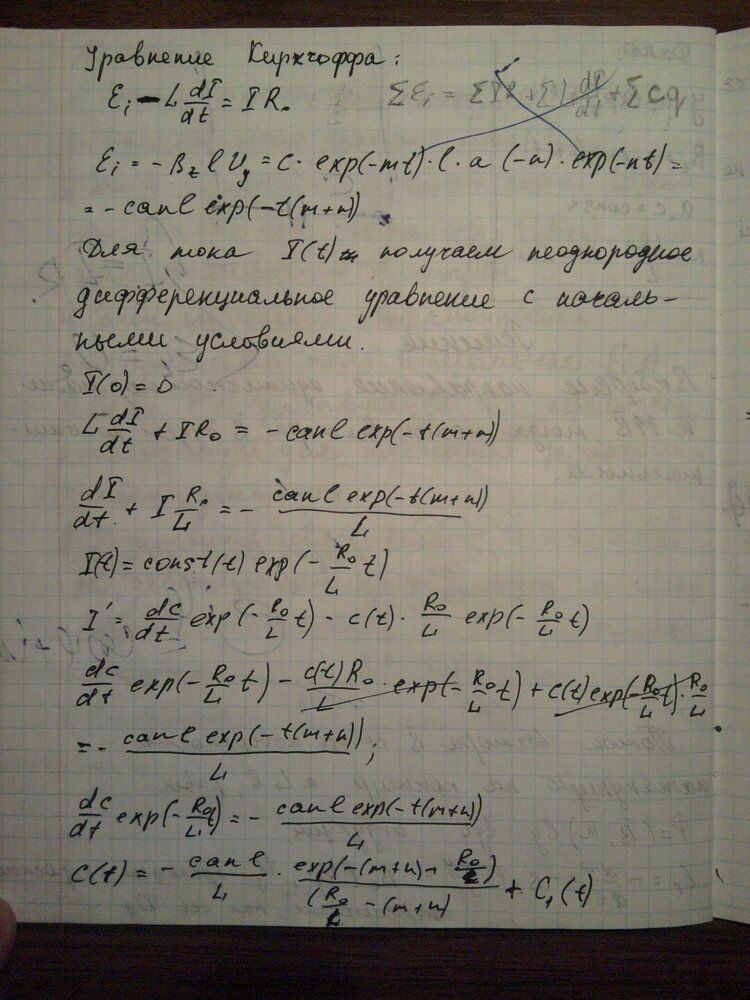 Уравнение Кирхгоффа:
Ɛi - L dI/dt = I R₀  ΣƐi = ΣIR + ΣL dI/dt + ΣCq
Ɛi = - Bz l Vy = c · exp(-mt) · l · a (-n) · exp(-nt) =
= - canl exp(-t(m+n))
Для тока I(t) получаем неоднородное
дифференциальное уравнение с началь-
ными условиями.
I(0) = 0
L dI/dt + I R₀ = - canl exp(-t(m+n))
dI/dt + I R₀/L = - canl exp(-t(m+n))/L
I(t) = const(t) exp(- R₀/L t)
I' = dc/dt exp(- R₀/L t) - c(t) · R₀/L exp(- R₀/L t)
dc/dt exp(- R₀/L t) - c(t)R₀/L · exp(- R₀/L t) + c(t) exp(- R₀/L t) · R₀/L
= - canl exp(-t(m+n))/L ;
dc/dt exp(- R₀t/L) = - canl exp(-t(m+n))/L
c(t) = - canl/L · exp(-(m+n) + R₀/L)/(R₀/L - (m+n) + C₁(t)